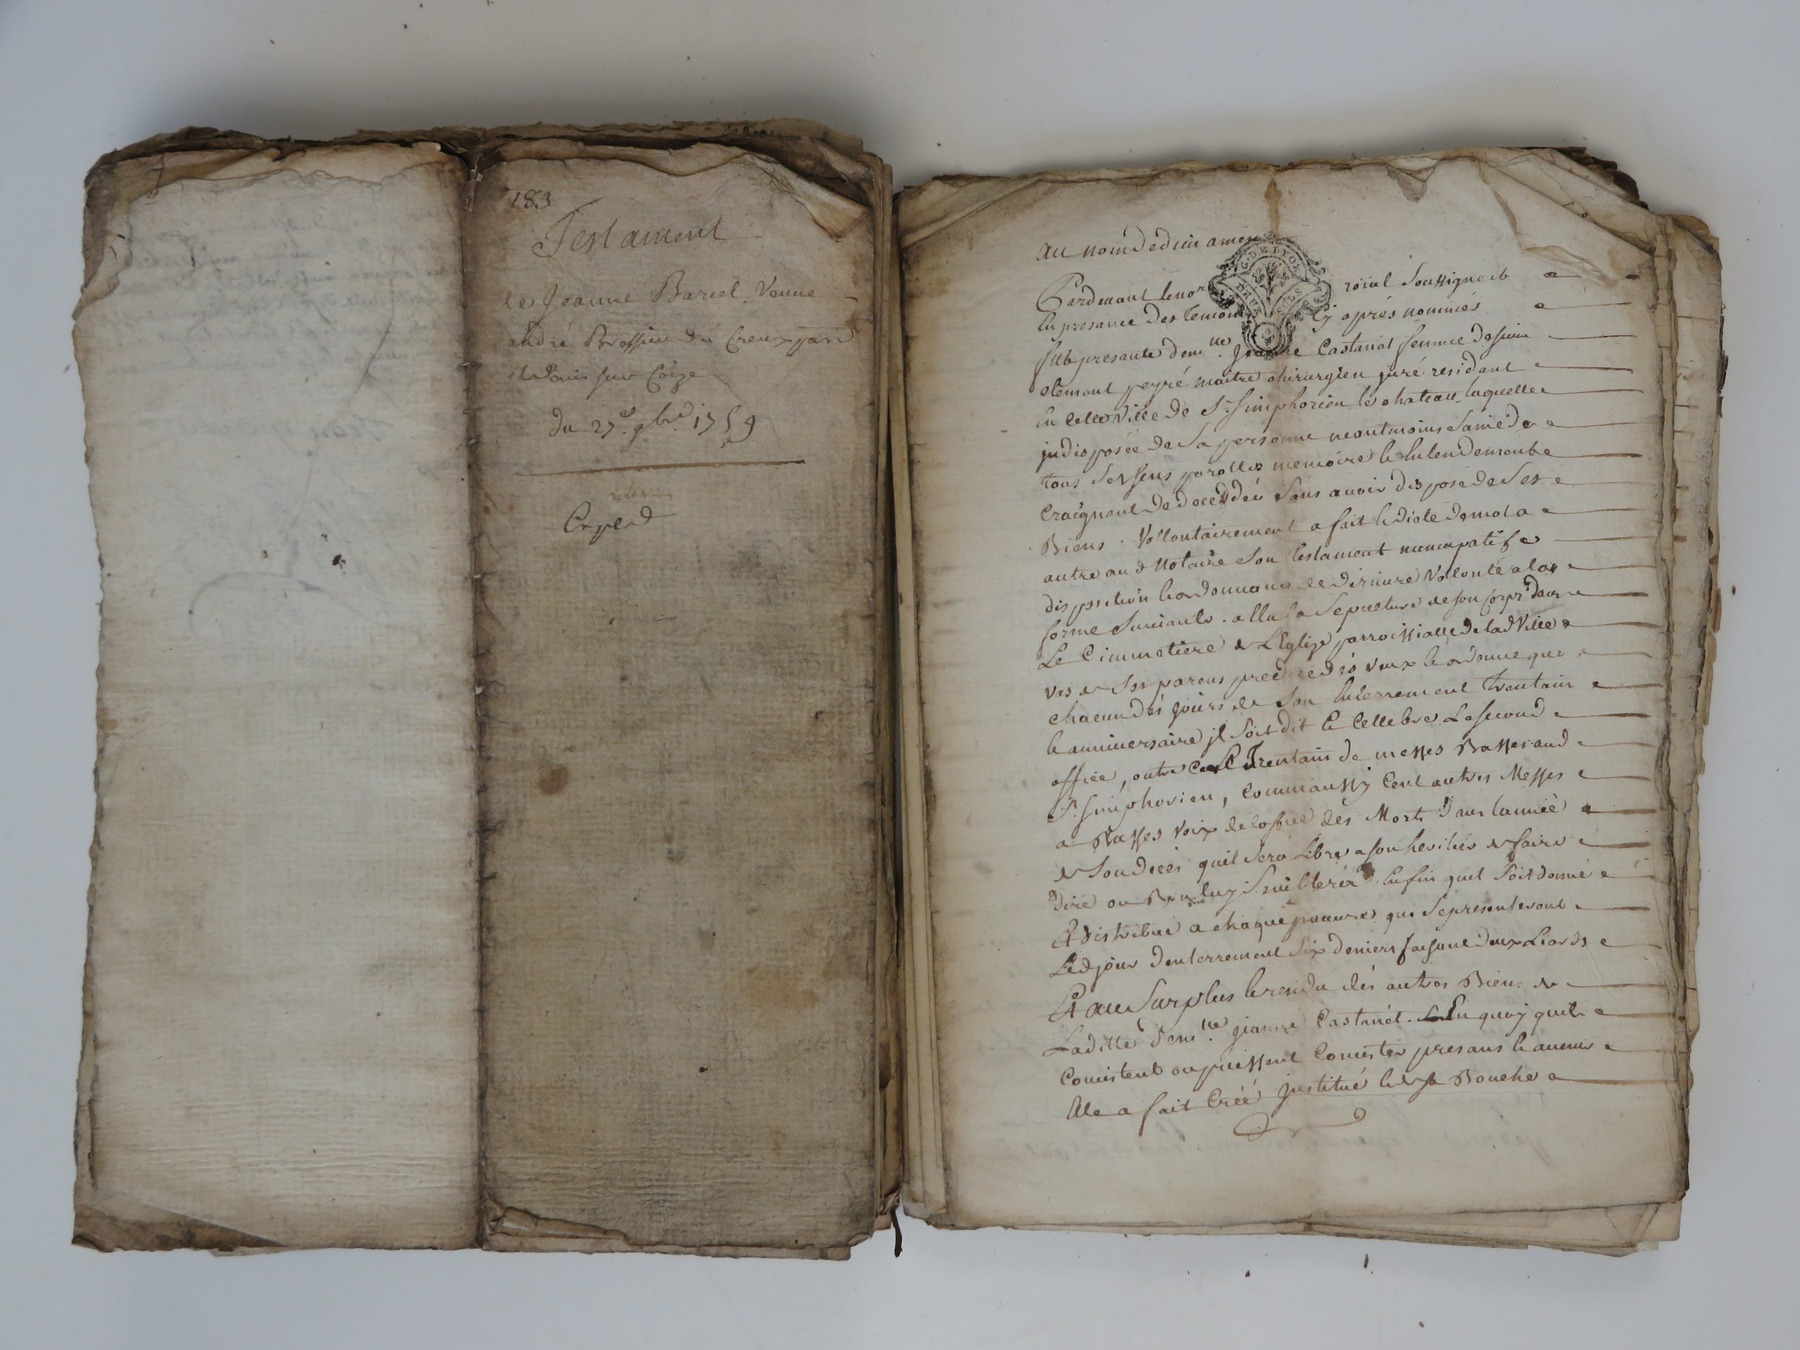 183
Testament
de Jeanne Barcel. Vauue
andré Bressieu du Creux par
st Denis sur Coize
du 27.e 9bre. 1759
Au nom de dieu amen
Pardevant le no roïal Soussigné et
En presance des temoins Cy aprés nommés
fut presante demlle. Jeanne Castanet femme de sieur
clement peyré maitre chirurgien juré residant
en cette ville de St. Simphorien le chateau, laquelle
jndisposée de sa personne neantmoins saine de
tous ses sens parolles memoire & entendement
Craignant de decedder sans avoir disposé de ses
Biens. Vollontairement a fait & dicté de mot a
autre aud Notaire son testament nuncupatif
disposition & ordonnance de derniere Volonté a la
forme suivante. alla la sepulture de son corps dans
Le Cimmetiere de L'Eglize parroissialle de lad Ville
vas de ses parens predecedés veux & ordonne que
chacun des jours de son enterrement trentain
& anniversaire jl soit dit & cellebré Le second
office, outre ce Trentain de messes Basses aud
St. Simphorien, comm'aussy Cent autres Messes
a Basses Voix de l'office des Morts dans l'année
de son decés qu'il sera Libre a son heritier de faire
dire ou Bon luy semblera. Enfin quil soit donné
Et distribué a chaque pauvres qui se presenteront
Led jour d'enterrement six deniers faisant deux Liards
Et au surplus & residu des autres Biens de
Laditte demlle. jeanne Castanet. En quoy quils
Consistent ou puissent Consister presans & avenir
Ale a fait Créé jnstitué & de sa Bouche